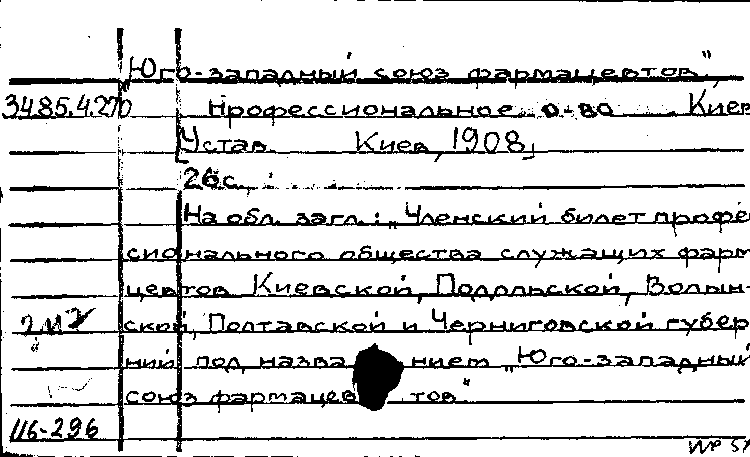 „Юго-западный союз фармацевтов",
3485.4.270 профессиональное о-во Киев
[Устав. Киев, 1908]
26с.
На обл. загл.: „Членский билет профес
сионального общества служащих фарма
цевтов Киевской, Подольской, Волын-
ской, Полтавской и Черниговской губер
ний под назва нием „Юго-западный
союз фармацев тов"
116-296